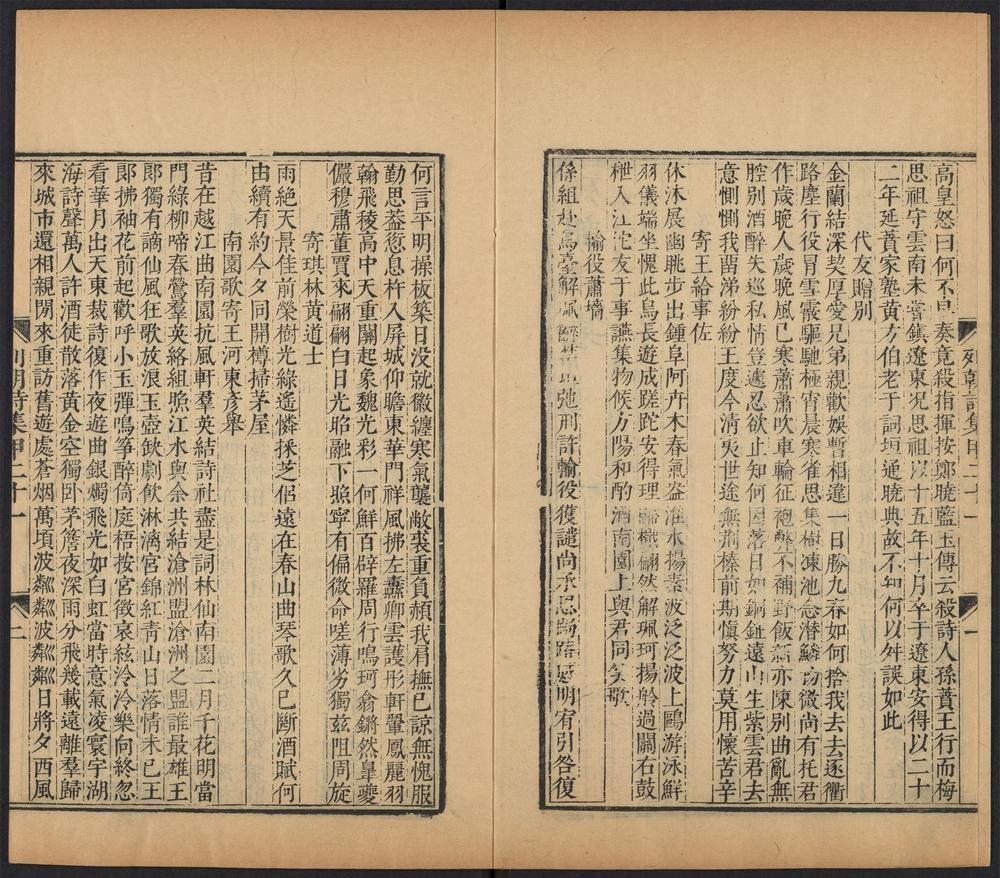 高皇怒曰何不早奏竟殺指揮按鄭曉藍玉傳云殺詩人孫蕡王行而梅
思祖守雲南未嘗鎮遼東況思祖以十五年十月卒于遼東安得以二十
二年延蕡家塾黄方伯老于詞垣通曉典故不知何以舛誤如此
代友贈别
金蘭結深契厚愛兄弟親歡娛暫相違一日勝九春如何捨我去去逐衝
路塵行役冒雪霰驅馳極宵晨寒雀思集樹凍池念潜鱗物微尚有托君
作歲晚人歲晚風已寒蕭蕭吹車輪征袍弊不補野飯新亦陳别曲亂無
腔别酒醉失巡私情豈遽忍欲止知何因落日如銅鉦遠山生紫雲君去
意惻惻我畱涕紛紛王度今清夷世途無荆榛前期愼努力莫用懷苦辛
寄王給事佐
休沐展幽眺步出鍾阜阿卉木春氣盎淮水揚素波泛泛波上鷗游泳鮮
羽儀端坐愧此鳥長遊成蹉跎安得理 檝翩然解珮珂揚舲過關右鼓
枻入江沱友于事讌集物候方陽和酌酒南園上與君同笑歌
輸役蕭墻
係組赴烏臺解 刑許輸役獲譴尚承恩 明宥引咎復
何言平明操板築日没就徽纆寒氣襲敝裘重負頳我肩撫已諒無愧服
勤思益愆息杵入屏城仰瞻東華門祥風拂左纛卿雲護彤軒翬鳳麗羽
翰飛稜高中天重關起象魏光彩一何鮮百辟羅周行鳴珂翕鏘然皐夔
儼穆肅董賈來翩翩白日光昭融下照寧有偏微命嗟薄劣獨兹阻周旋
寄琪林黄道士
雨絶天景佳前榮樹光綠遙憐採芝侣遠在春山曲琴歌久已斷酒賦何
由續有約今夕同開樽掃茅屋
南園歌寄王河東彦舉
昔在越江曲南園抗風軒羣英結詩社盡是詞林仙南園二月千花明當
門綠柳啼春鶯羣英絡組照江水與余共結滄洲盟滄洲之盟誰最雄王
郎獨有謫仙風狂歌放浪玉壺缺劇飲淋漓宮錦紅靑山日落情未已王
郎拂袖花前起歡呼小玉彈鳴筝醉倚庭梧按宮徵哀絃泠泠樂向終忽
看華月出天東裁詩復作夜遊曲銀燭飛光如白虹當時意氣凌寰宇湖
海詩聲萬人許酒徒散落黄金空獨卧茅簷夜深雨分飛幾載遠離羣歸
來城市還相親閒來重訪舊遊處蒼烟萬頃波粼粼波粼粼日將夕西風
列朝詩集甲二十一
一
列朝詩集甲二十一
二